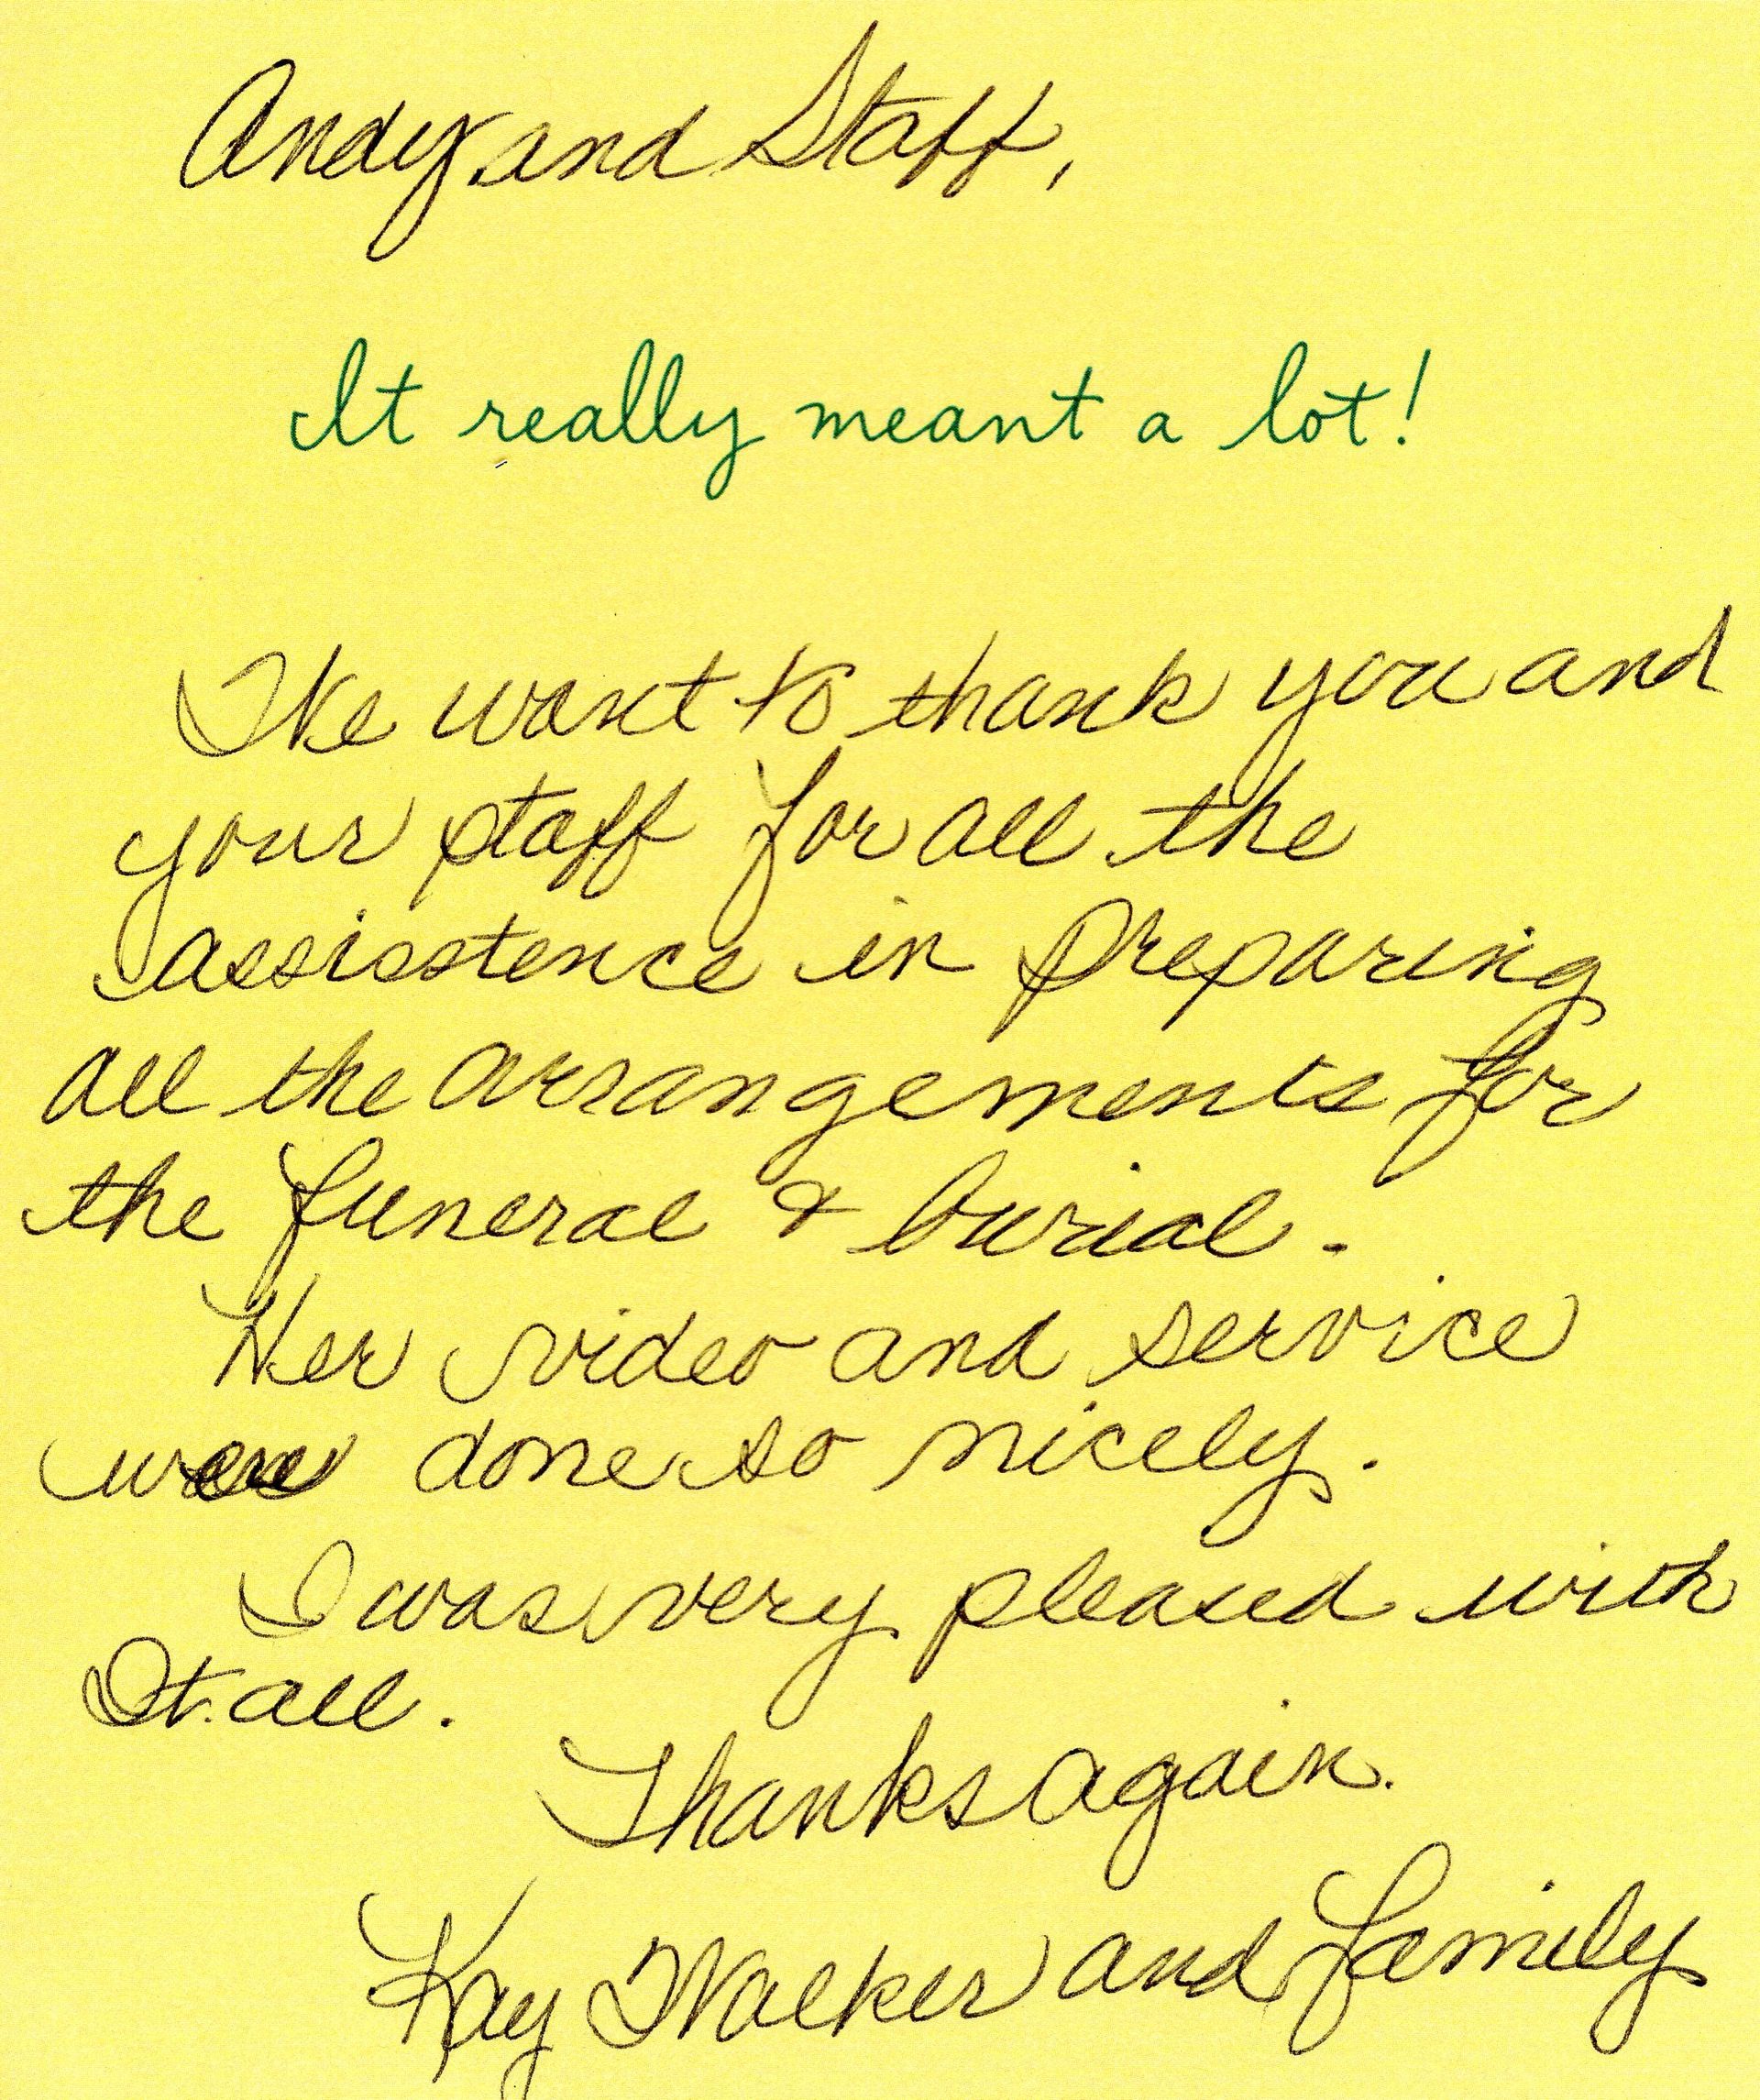 Andy and Staff,
It really meant a lot!
We want to thank you and
your staff for all the
assisstence in preparing
all the arrangements for
the funeral & burial.
Her video and service
were done so nicely.
I was very pleased with
It all.
Thanks again.
Kay Walker and family